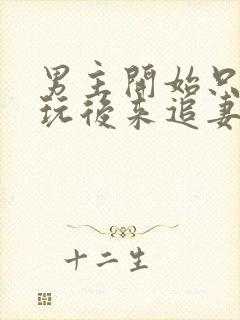 男主開始只
玩後来追妻
十二生